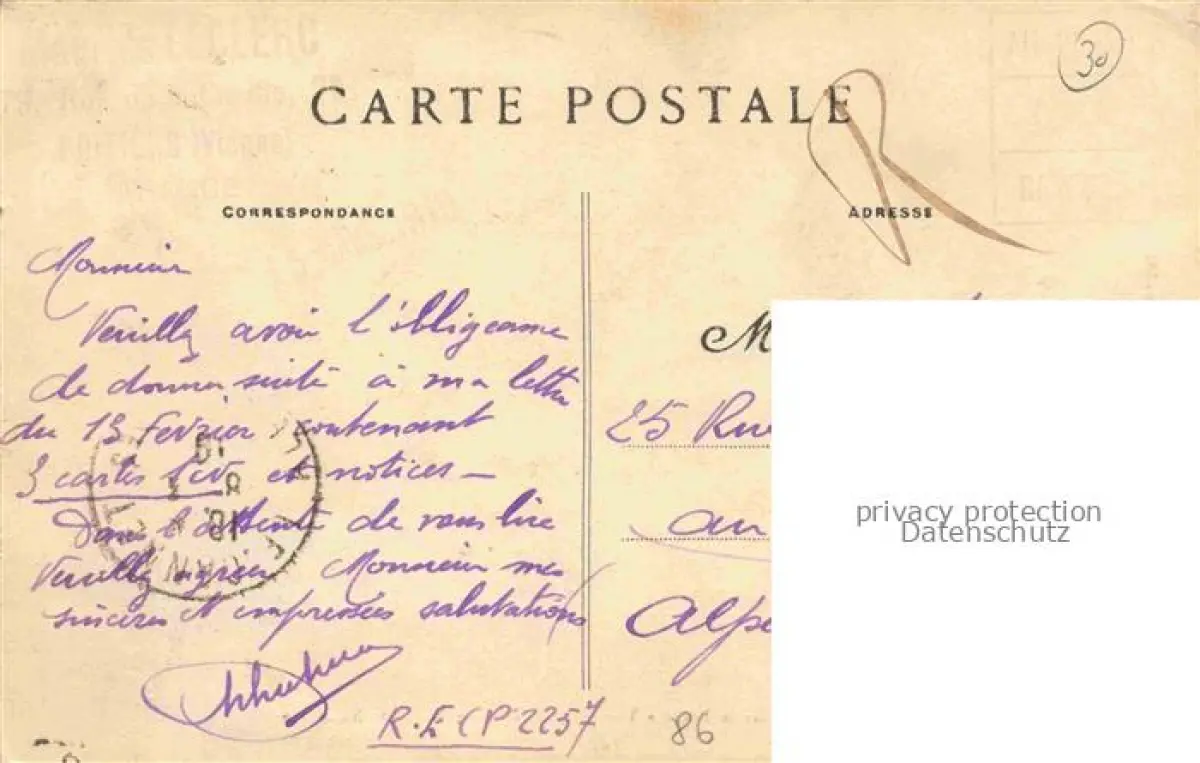 30
CARTE POSTALE
CORRESPONDANCE
ADRESSE
Monsieur
Veuillez avoir l'obligeance
de donner suite à ma lettre
du 13 février contenant
3 cartes et notices —
Dans l'attente de vous lire
Veuillez agréer Monsieur mes
sincères et empressées salutations
R.E CP 2257
86
M
25 Rue
au
Alpe
privacy protection
Datenschutz